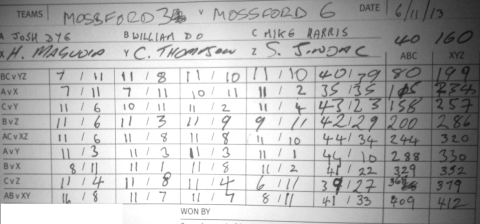 TEAMS MOSSFORD 3 v MOSSFORD 6 DATE 6/11/13
A JOSH DYE B WILLIAM DO C MIKE HARRIS 40 160
X H. MASUDIA Y C. THOMPSON Z S. JINDAL ABC XYZ
BCvYZ 7/11 11/8 11/10 11/10 40/79 80 199
AvX 7/11 7/11 10/11 11/2 35/35 115 234
CvY 11/6 10/11 11/2 11/4 43/23 158 257
BvZ 11/6 11/3 11/9 9/11 42/29 200 286
ACvXZ 11/6 11/8 11/8 11/10 44/34 244 320
AvY 11/3 11/3 11/3 11/1 44/10 288 330
BvX 8/11 11/1 11/8 11/2 41/22 329 352
CvZ 11/4 11/8 11/4 6/11 39/27 368 379
ABvXY 11/7 11/4 8/11 41/33 409 412
WON BY